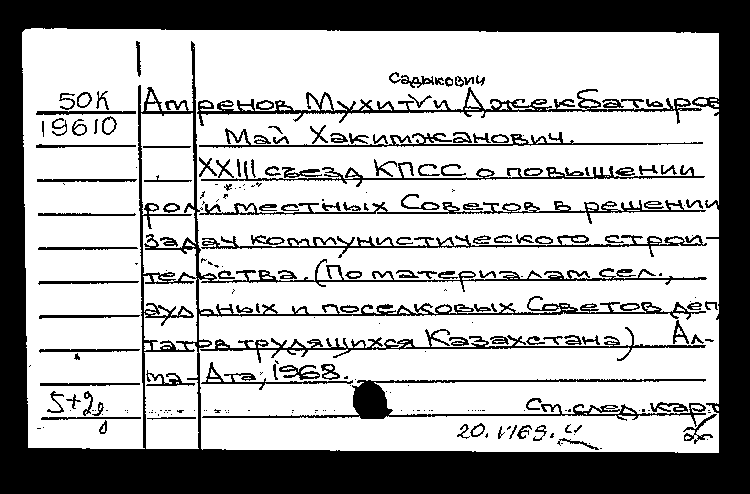 Садыкович
50К Атренов, Мухит и Джекбатыров
19610 Май Хакимжанович.
XXIII съезд КПСС о повышении
роли местных Советов в решении
задач коммунистического строи-
тельства. (По материалам сел.,
аульных и поселковых Советов деп
татов трудящихся Казахстана) Ал-
ма-Ата, 1968.
5+2
Ст. след. карт
20.VI69.